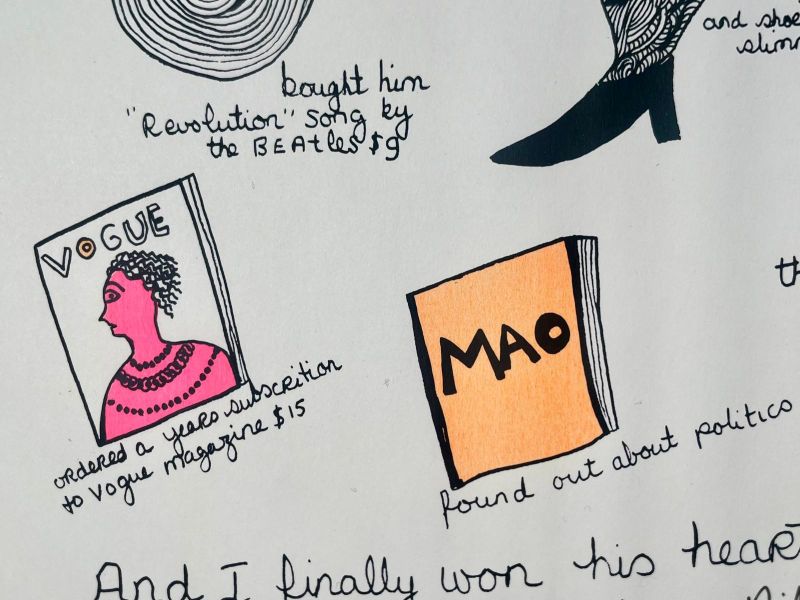 bought him
"Revolution" song by
the BEAtles $9
and shoe
slimm
VOGUE
ordered a years subscrition
to Vogue magazine $15
MAO
found out about politics
th
And I finally won his heart